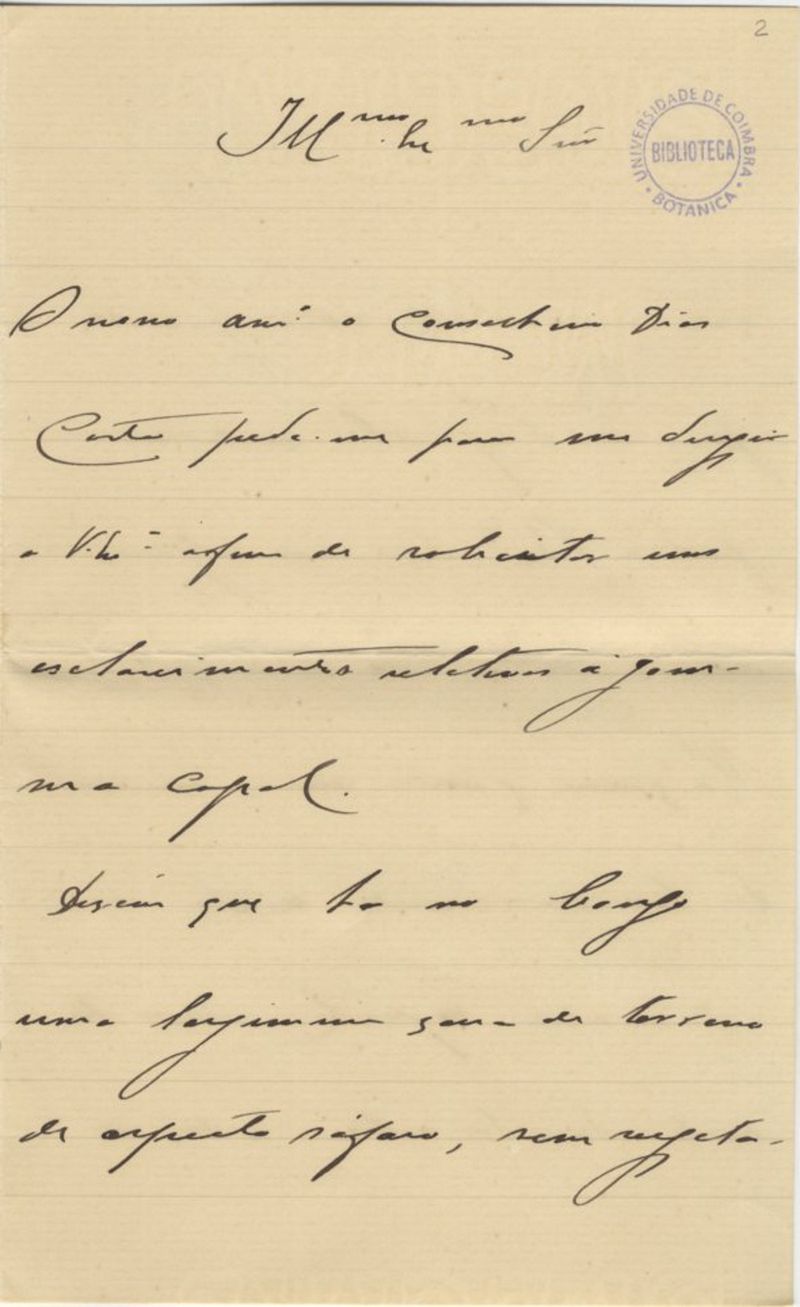 2
UNIVERSIDADE DE COIMBRA
BIBLIOTECA
BOTANICA
Illmo. Exmo Snr
O nosso amo o Conselheiro Dias
Costa pede-me para me dirigir
a V. Exa afim de solicitar uns
esclarecimentos relativos á gom-
ma copal.
Dizem que ha no Congo
uma larguissima zona de terreno
de aspecto sáfaro, sem vegeta-